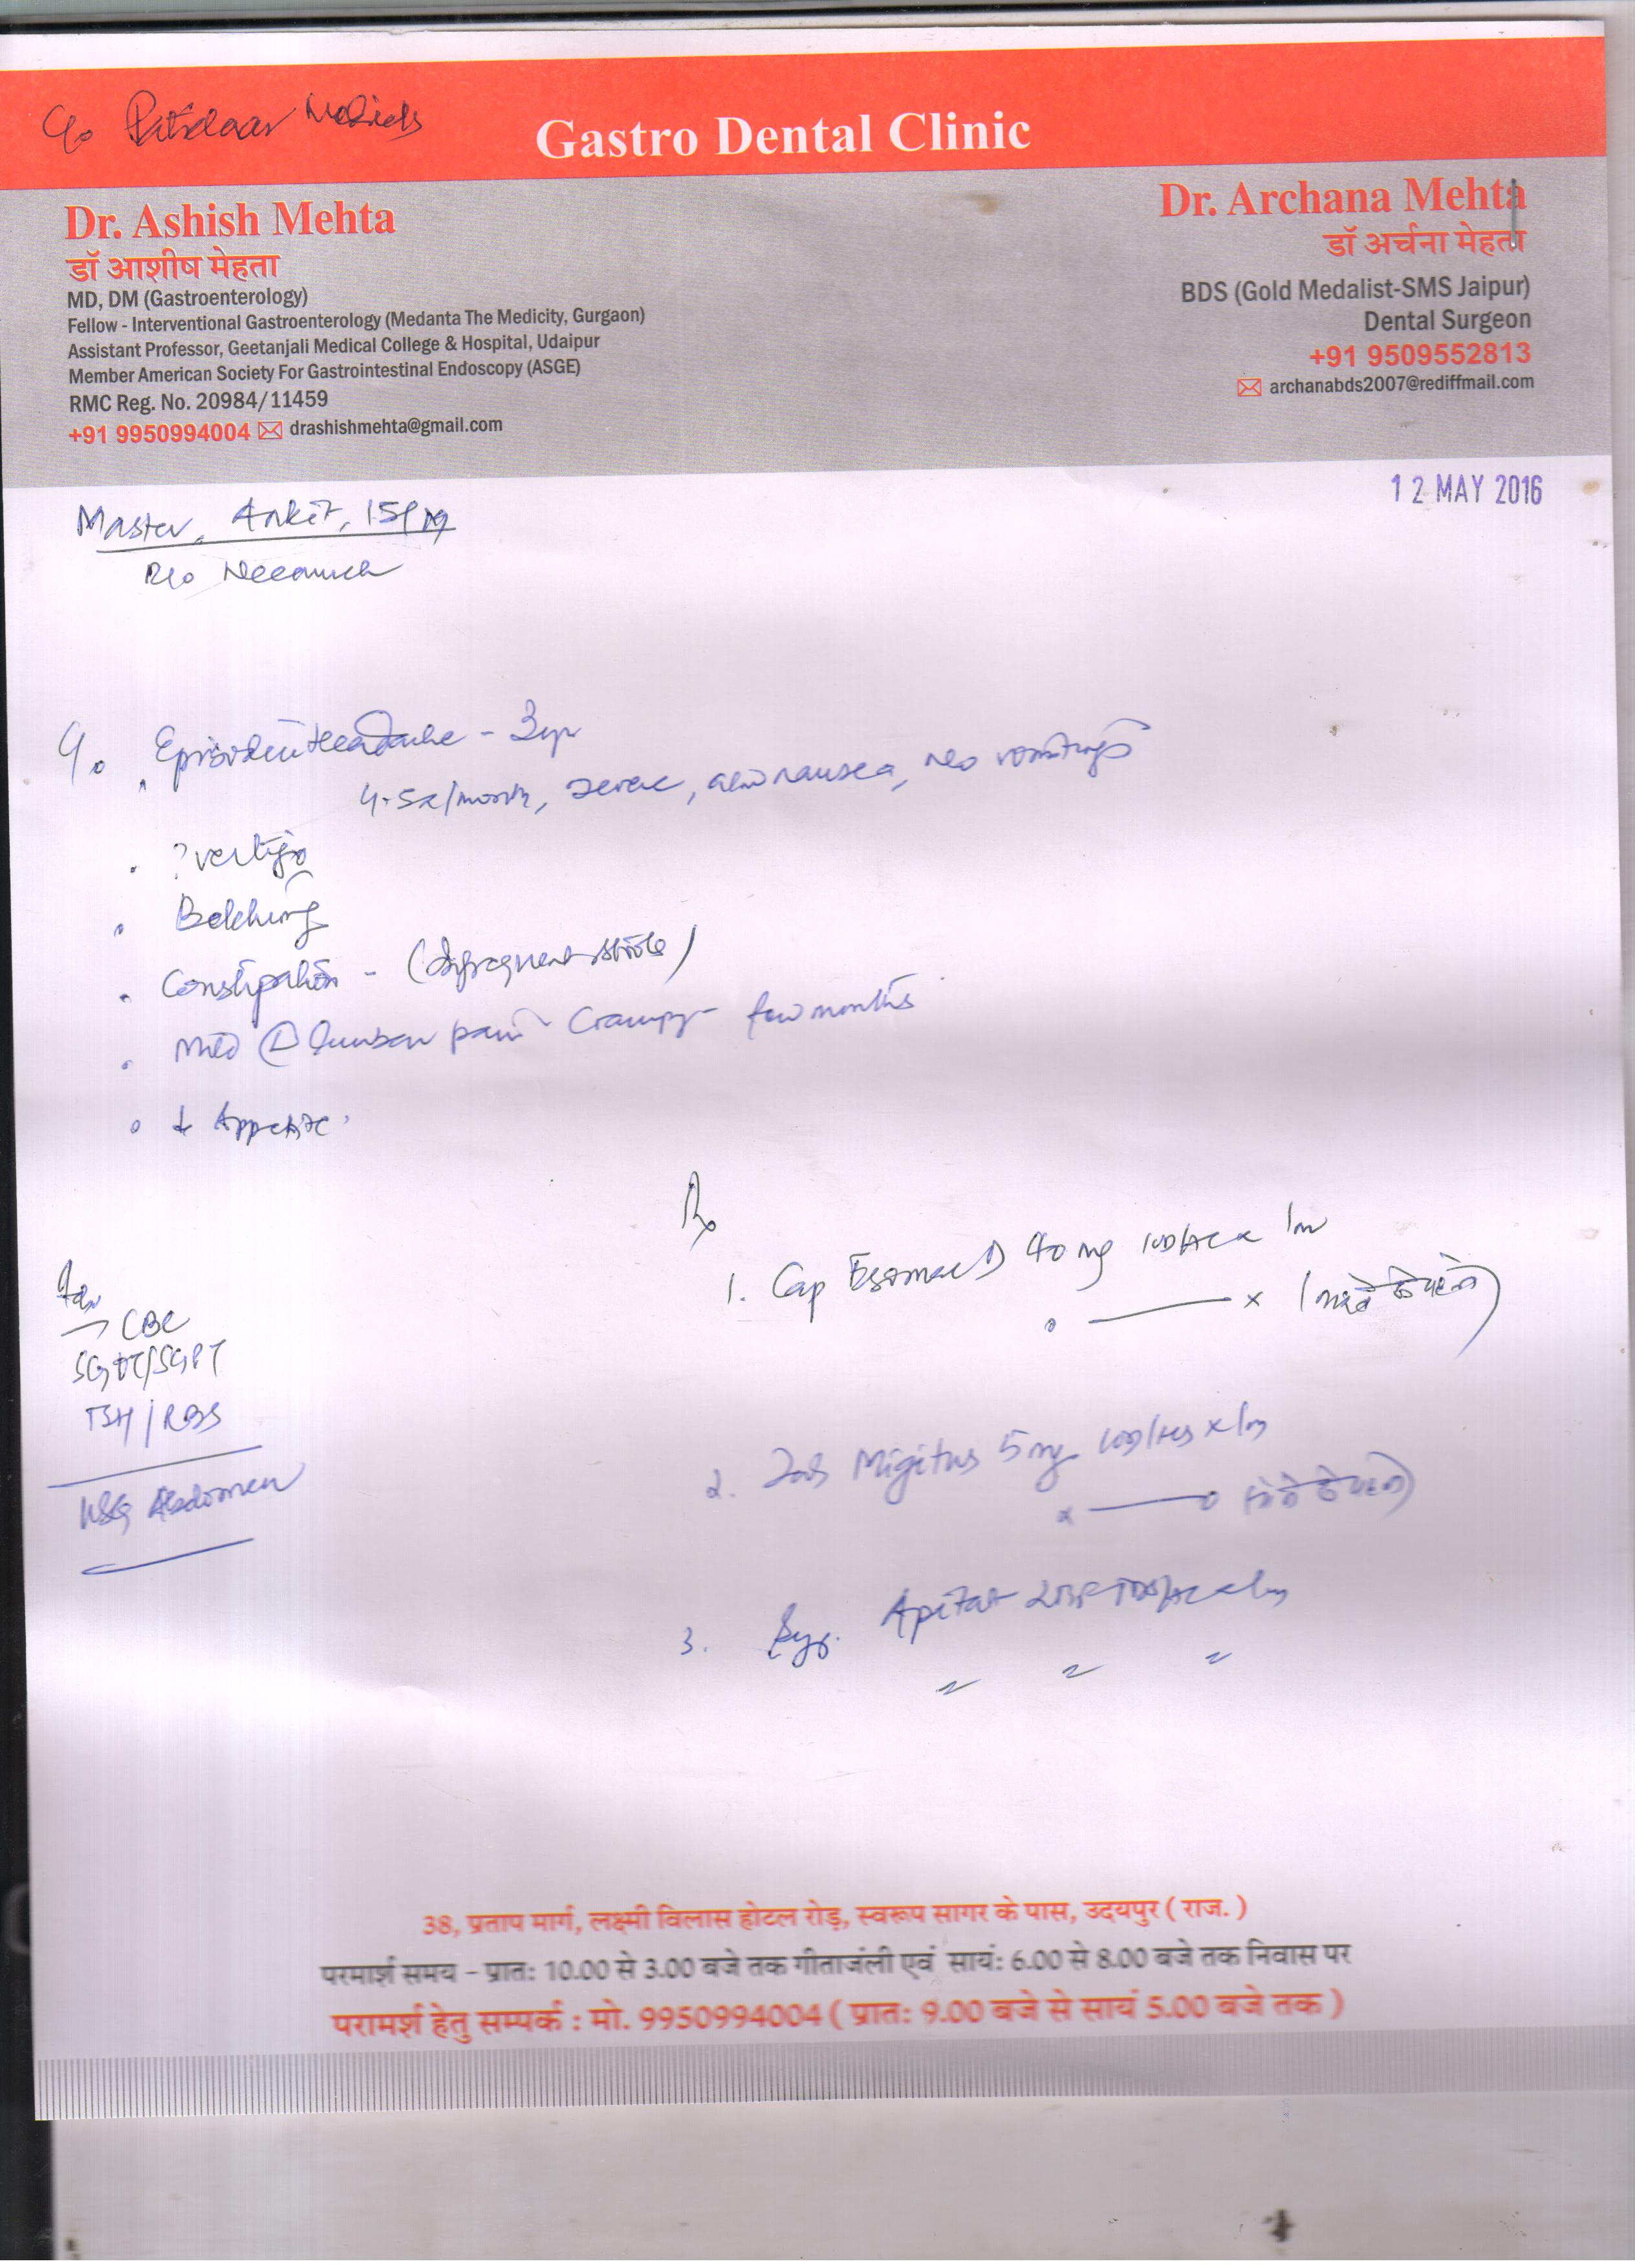 C/o Patidaar Medicals
Gastro Dental Clinic
Dr. Ashish Mehta
डॉ आशीष मेहता
MD, DM (Gastroenterology)
Fellow - Interventional Gastroenterology (Medanta The Medicity, Gurgaon)
Assistant Professor, Geetanjali Medical College & Hospital, Udaipur
Member American Society For Gastrointestinal Endoscopy (ASGE)
RMC Reg. No. 20984/11459
+91 9950994004 drashishmehta@gmail.com
Dr. Archana Mehta
डॉ अर्चना मेहता
BDS (Gold Medalist-SMS Jaipur)
Dental Surgeon
+91 9509552813
archanabds2007@rediffmail.com
12 MAY 2016
Master. Ankit, 15y/M
R/o Neemuch
C/o . Episodic Headache - 3yr
4-5x/month, severe, nausea, no vomitings
. ? vertigo
. Belching
. Constipation - (Infrequent stools)
. Mild (L) lumbar pain - Crampy - few months
. ↓ Appetite.
Rx
1. Cap Esomac D 40 mg 1OD/AC x 1m
o ——— x (खाने के पहले)
Adv
→ CBC
SGOT/SGPT
TSH/RBS
USG Abdomen
2. Tab Migitus 5mg 1OD/HS x 1m
x ——— o (सोने के पहले)
3. Syp. Apitat 2tsf TDS/AC x 1m
〃 〃 〃
38, प्रताप मार्ग, लक्ष्मी विलास होटल रोड़, स्वरूप सागर के पास, उदयपुर ( राज. )
परमार्श समय - प्रात: 10.00 से 3.00 बजे तक गीताजंली एवं सायं: 6.00 से 8.00 बजे तक निवास पर
परामर्श हेतु सम्पर्क : मो. 9950994004 ( प्रात: 9.00 बजे से सायं 5.00 बजे तक )